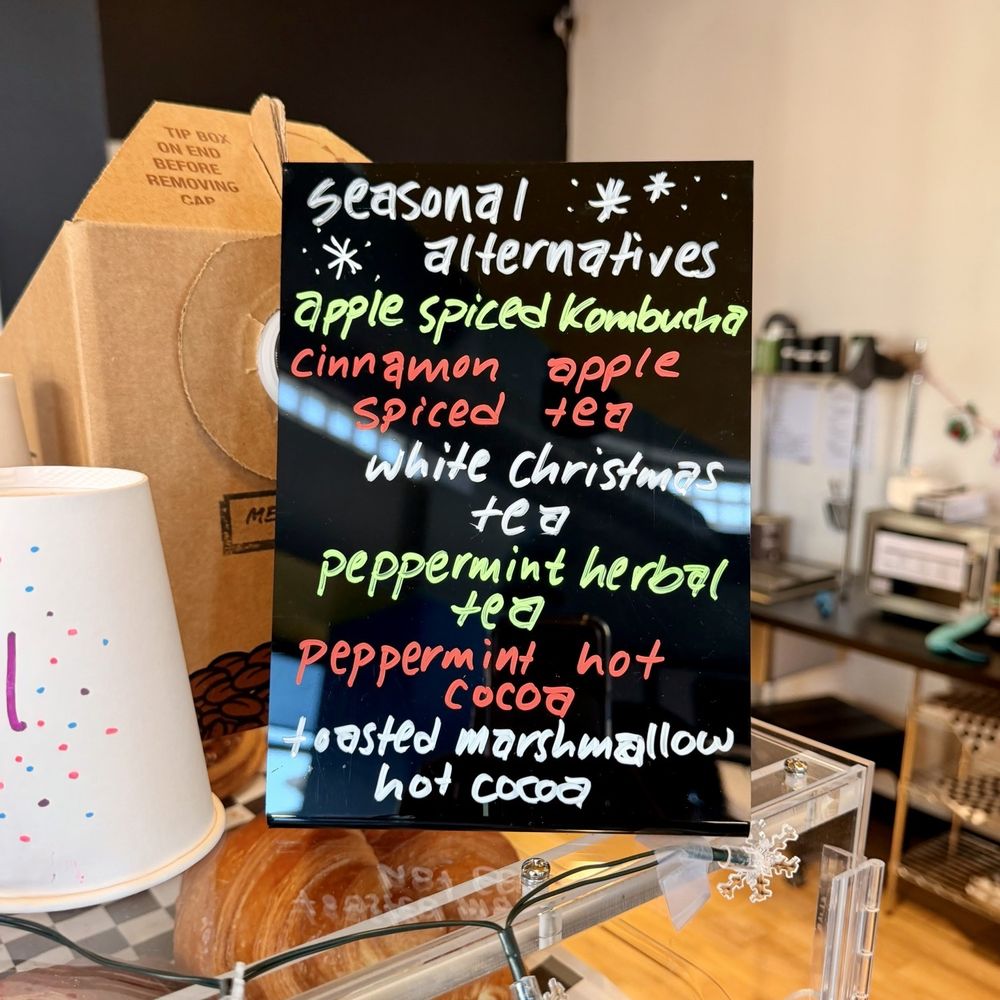 TIP BOX
ON END
BEFORE
REMOVING
CAP
seasonal
alternatives
apple spiced kombucha
cinnamon apple
spiced tea
white christmas
tea
peppermint herbal
tea
peppermint hot
cocoa
toasted marshmallow
hot cocoa